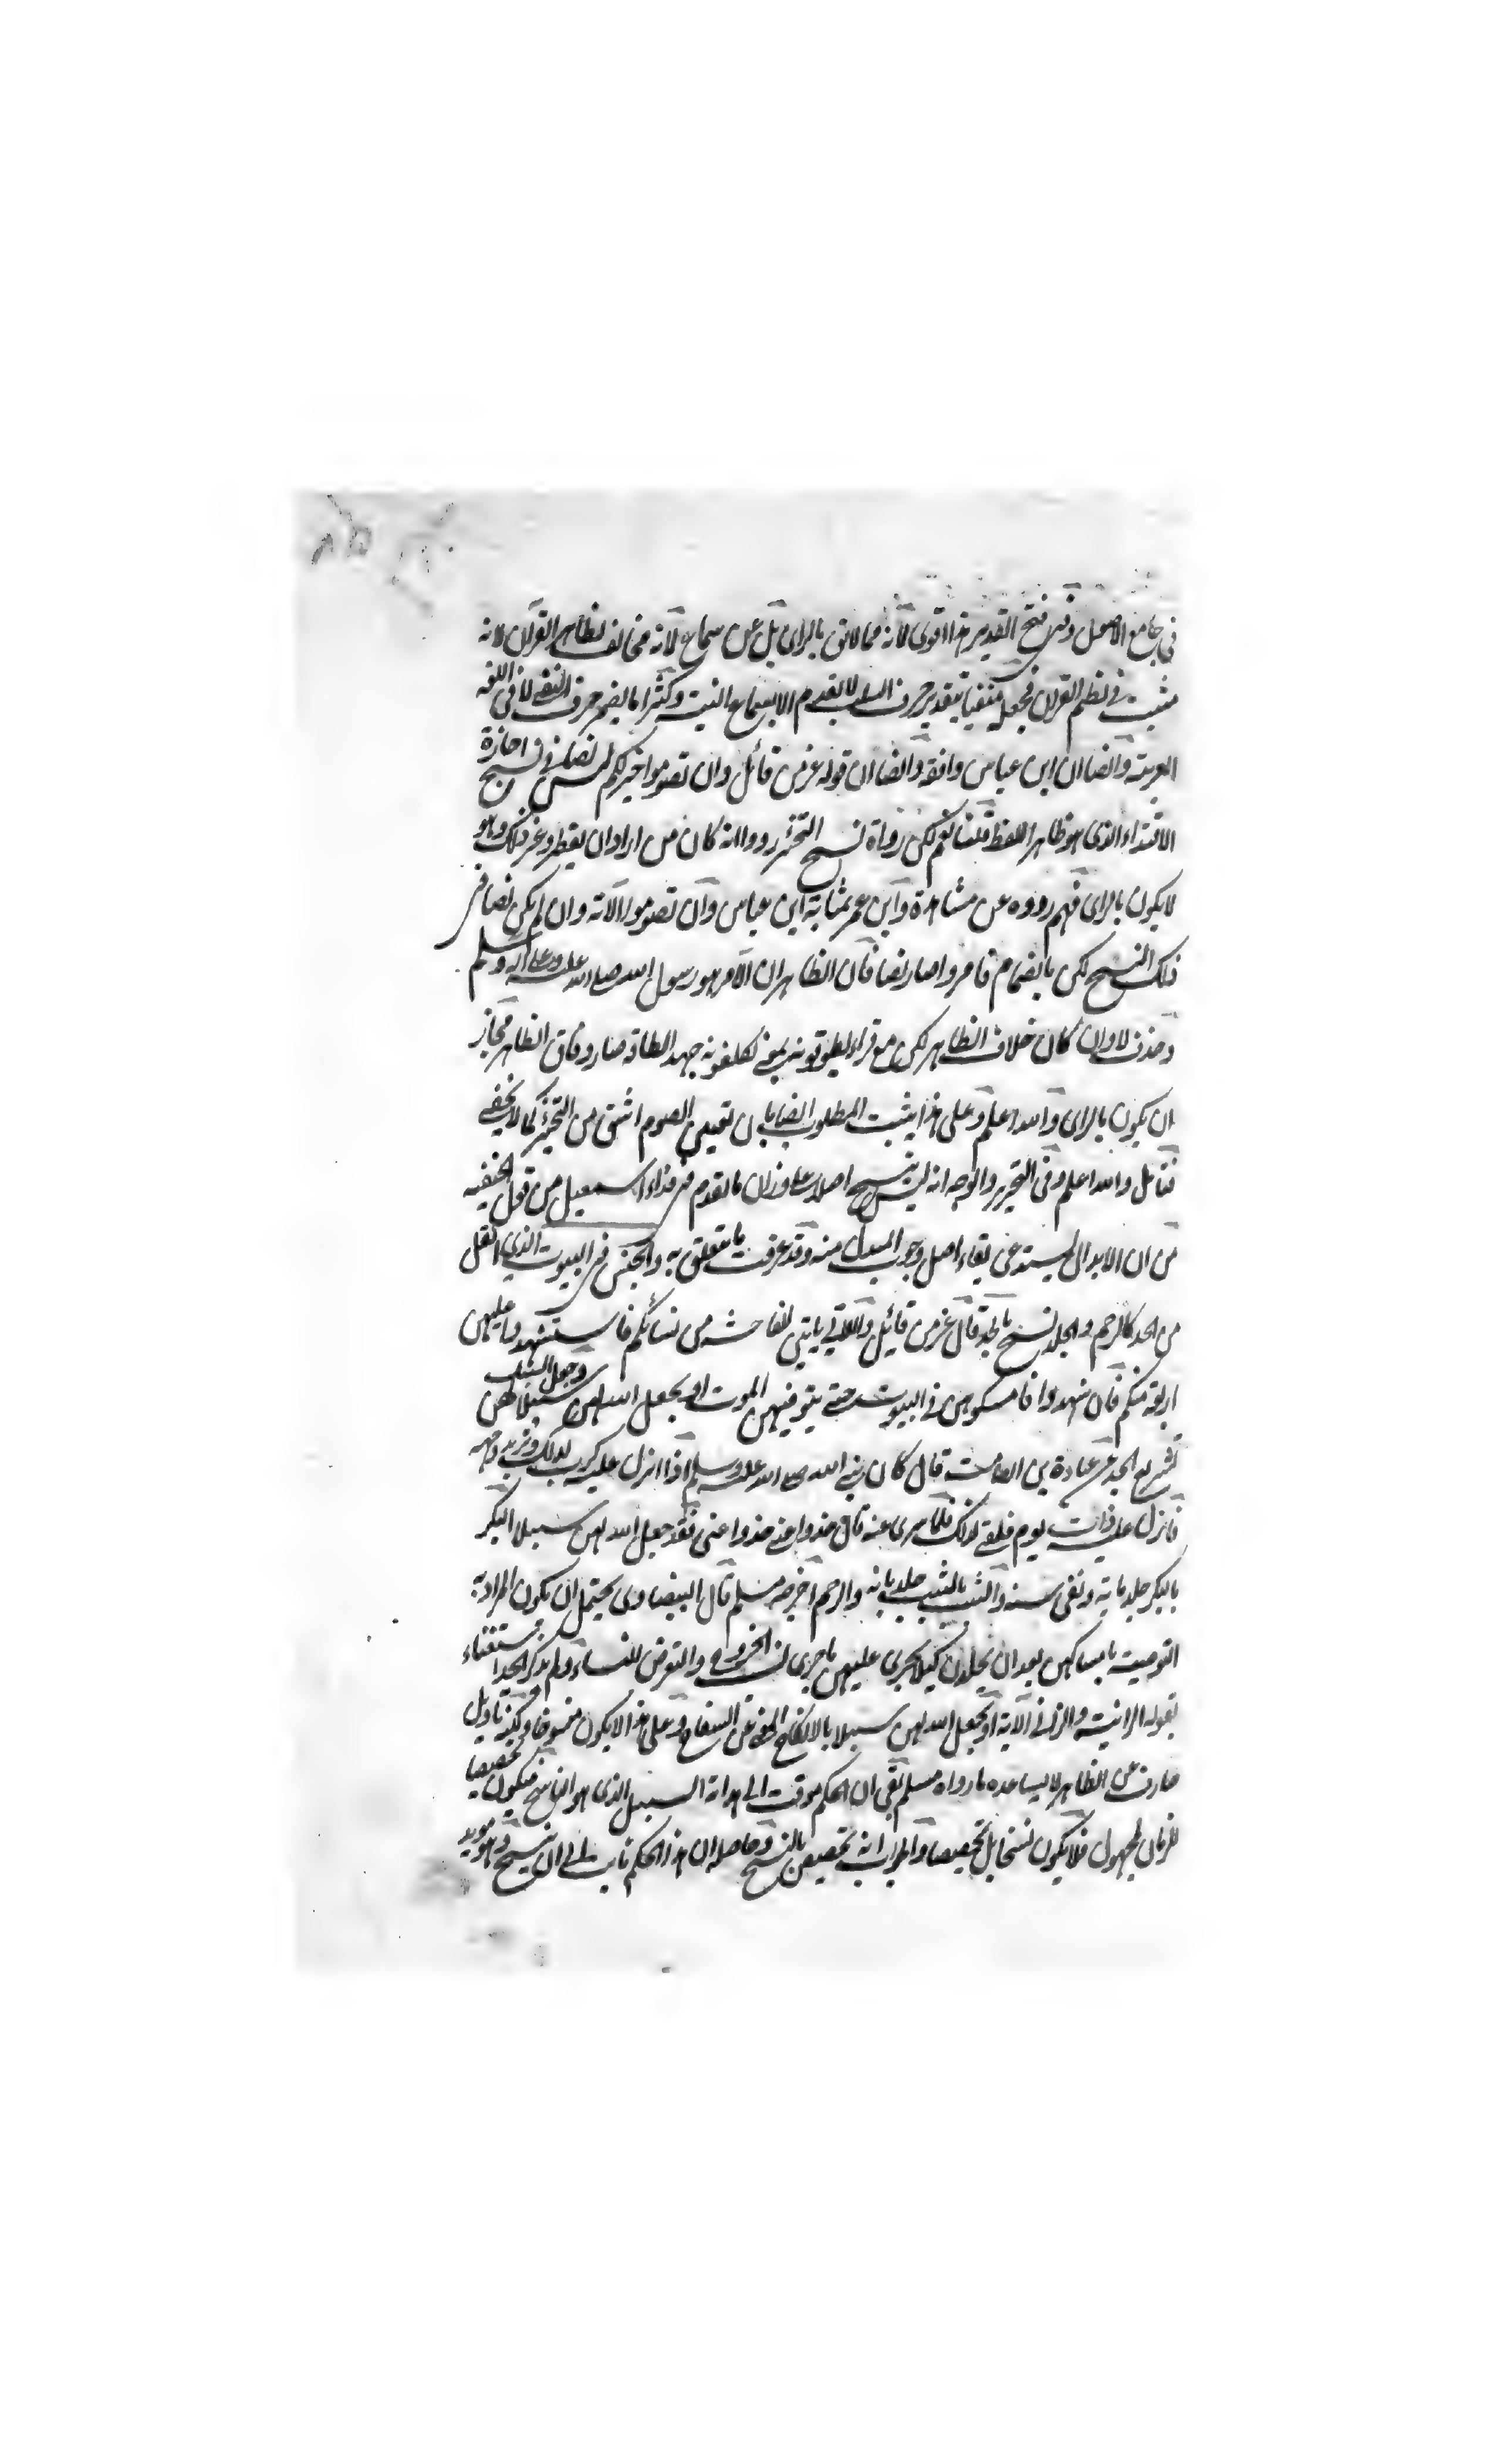 في جامع الاصول وفى فتح القدير هذا اقوى لانه مما لا يق بالراى بل عن سماع لانه مخالف لظاهر القران لانه
مثبت في نظم القران فجعله منفيا بتقدير حرف السلب لا يقدم الا بسماع البتة وكثيرا ما يضمر حرف النفي لا في اللغة
العربية وايضا ان ابن عباس وايضا ان قوله عز من قائل وان تصوموا خير لكم ليس نصا في نسخ اجازة
الافتداء الذى هو ظاهر اللفظ قلنا نعم لكن رواة نسخ التخيير رووا انه كان من اراد ان يفطر وغير ذلك وهو
لا يكون بالراى فهم رووه عن مشاهدة وابن عمر بمثابة ابن عباس وان تصوموا الاية وان لم يكن نصا فى
ذلك النسخ لكن بانضمام فامروا صار نصا فان الظاهر ان الامر هو رسول الله صلى الله عليه وعلى اله وسلم
وحذف لا وان كان خلاف الظاهر لكن مع قراءة يطوقونه بمعنى يكلفونه جهد الطاقة صار وفاق الظاهر فجاز
ان يكون بالراى والله اعلم وعلى هذا يثبت المطلوب ايضا بان تعيين الصوم اشق من التخيير كما لا يخفى
فتامل والله اعلم وفى التحرير والوجه انه ليس بنسخ اصلا على وزان ما تقدم فى فداء اسمعيل من قول الحنفية
من ان الابدال يستدعى بقاء اصل وجوب المبدل منه وقد عرفت ما يتعلق به والحبس فى البيوت الذى اثقل
من الحد كالرجم والجلد نسخ بالحد قال عز من قائل واللاتي ياتين الفاحشة من نسائكم فاستشهدوا عليهن
اربعة منكم فان شهدوا فامسكوهن فى البيوت حتى يتوفيهن الموت او يجعل الله لهن سبيلا وجعل السبيل لهن
تشريع الحد عن عبادة بن الصامت قال كان نبي الله صلى الله عليه وسلم اذا انزل عليه كرب لذلك وتربد وجهه
فانزل عليه ذات يوم فلقي كذلك فلما سرى عنه قال خذوا عني خذوا عنى فقد جعل الله لهن سبيلا البكر
بالبكر جلد مائة ونفى سنة والثيب بالثيب جلد مائة والرجم اخرجه مسلم قال البيضاوى يحتمل ان يكون المراد به
التوصية بامساكهن بعد ان يجلدن كيلا يجرى عليهن ما جرى بسبب الخروج والتعرض للنساء ولم يذكر الحد استغناء
بقوله الزانية والزاني الاية او يجعل الله لهن سبيلا بالانكاح المغنى عن السفاح وعلى هذا لا يكون منسوخا ولكنه تاويل
صارف عن الظاهر لا يساعده ما رواه مسلم بقى ان الحكم موقت الى هداية السبيل الذى هو الناسخ فيكون تخصيصا
للزمان المجهول فلا يكون نسخا بل تخصيصا والجواب انه تخصيص بالنسخ وحاصله ان هذا الحكم ثابت الى ان ينسخ وهو مويد